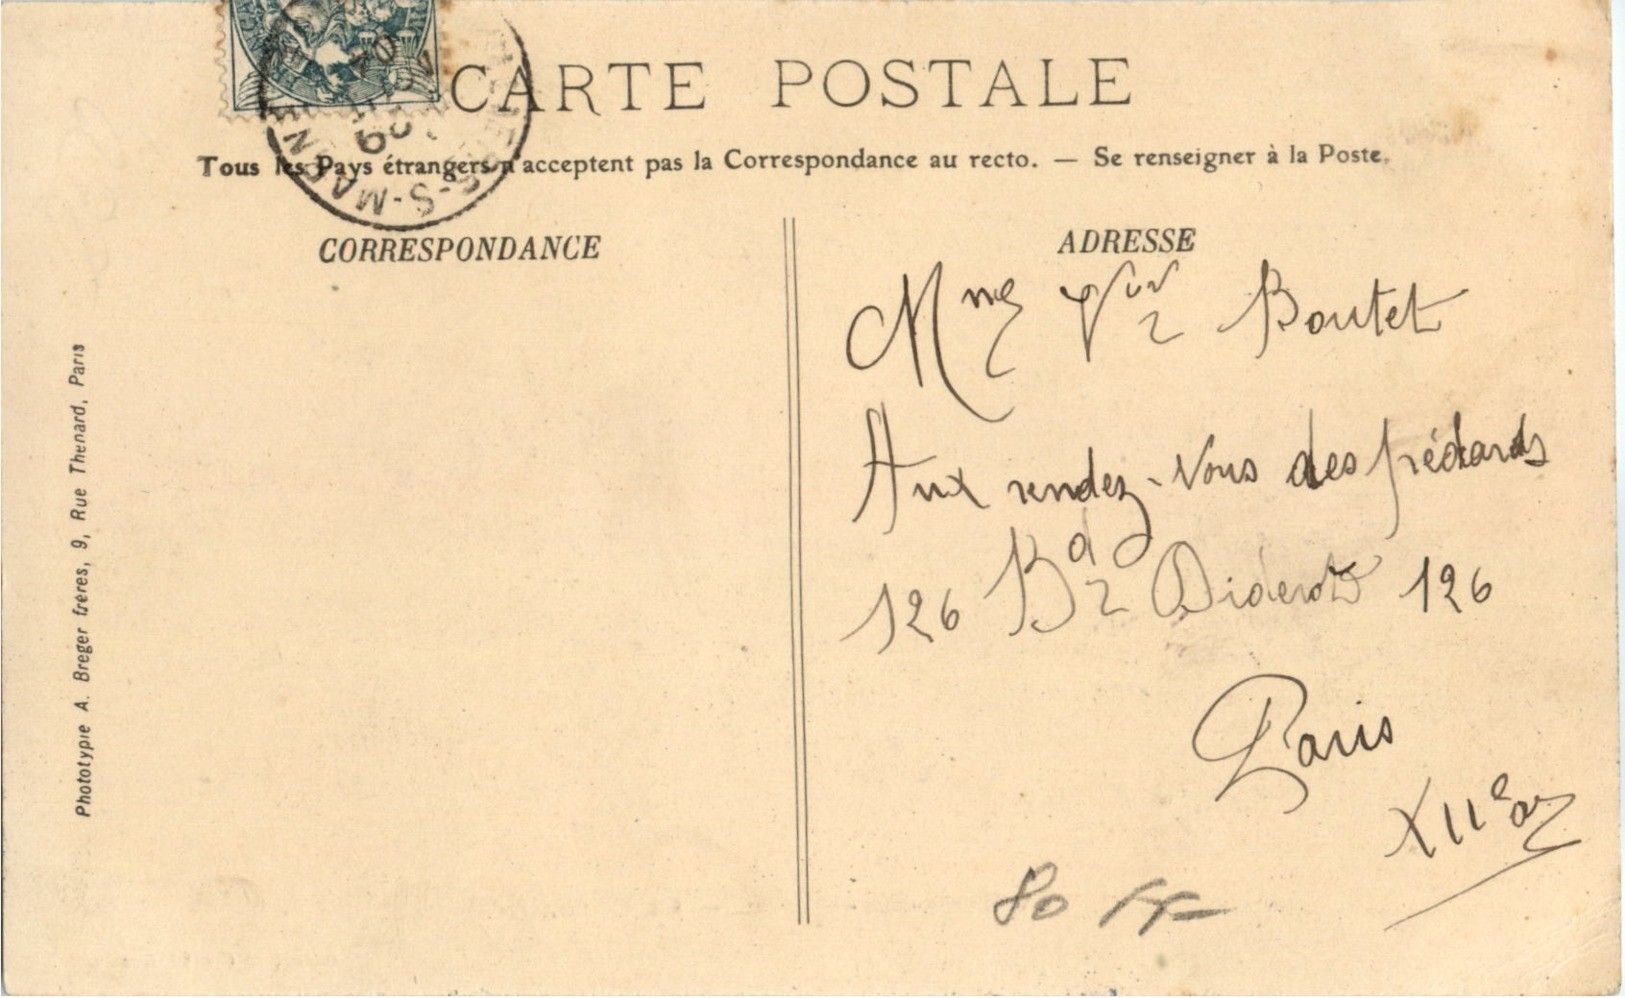 CARTE POSTALE
Tous les Pays étrangers n'acceptent pas la Correspondance au recto. — Se renseigner à la Poste.
CORRESPONDANCE
ADRESSE
Mme Boutet
Aux rendez-vous des
126 Bd Diderot 126
Paris
XIIe ar
80 FF
Phototypie A. Breger frères, 9, Rue Thenard, Paris
-S-MARNE